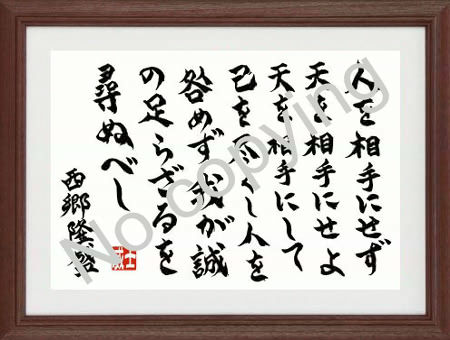 人を相手にせず
天を相手にせよ
天を相手にして
己を尽くし人を
咎めず我が誠
の足らざるを
尋ぬべし
西郷隆盛
No copying